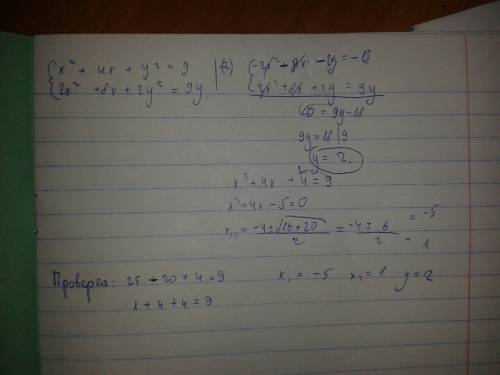 {x² + 4x + y² = 9 |(-2)
{2x² + 8x + 2y² = 9y.
{-2x² - 8x - 2y = -18
{2x² + 8x + 2y = 9y
0 = 9y - 18
9y = 18 | 9
y = 2.
x² + 4x + 4 = 9
x² + 4x - 5 = 0
x₁,₂ = (-4 ± √(16 + 20))/2 = (-4 ± 6)/2 = -5
1
Проверка: 25 - 20 + 4 = 9
x₁ = -5 x₂ = 1 y = 2
1 + 4 + 4 = 9